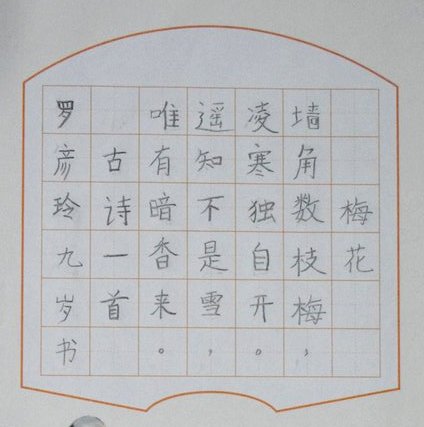 梅花
墙角数枝梅，
凌寒独自开。
遥知不是雪，
唯有暗香来。
古诗一首
罗彦玲九岁书